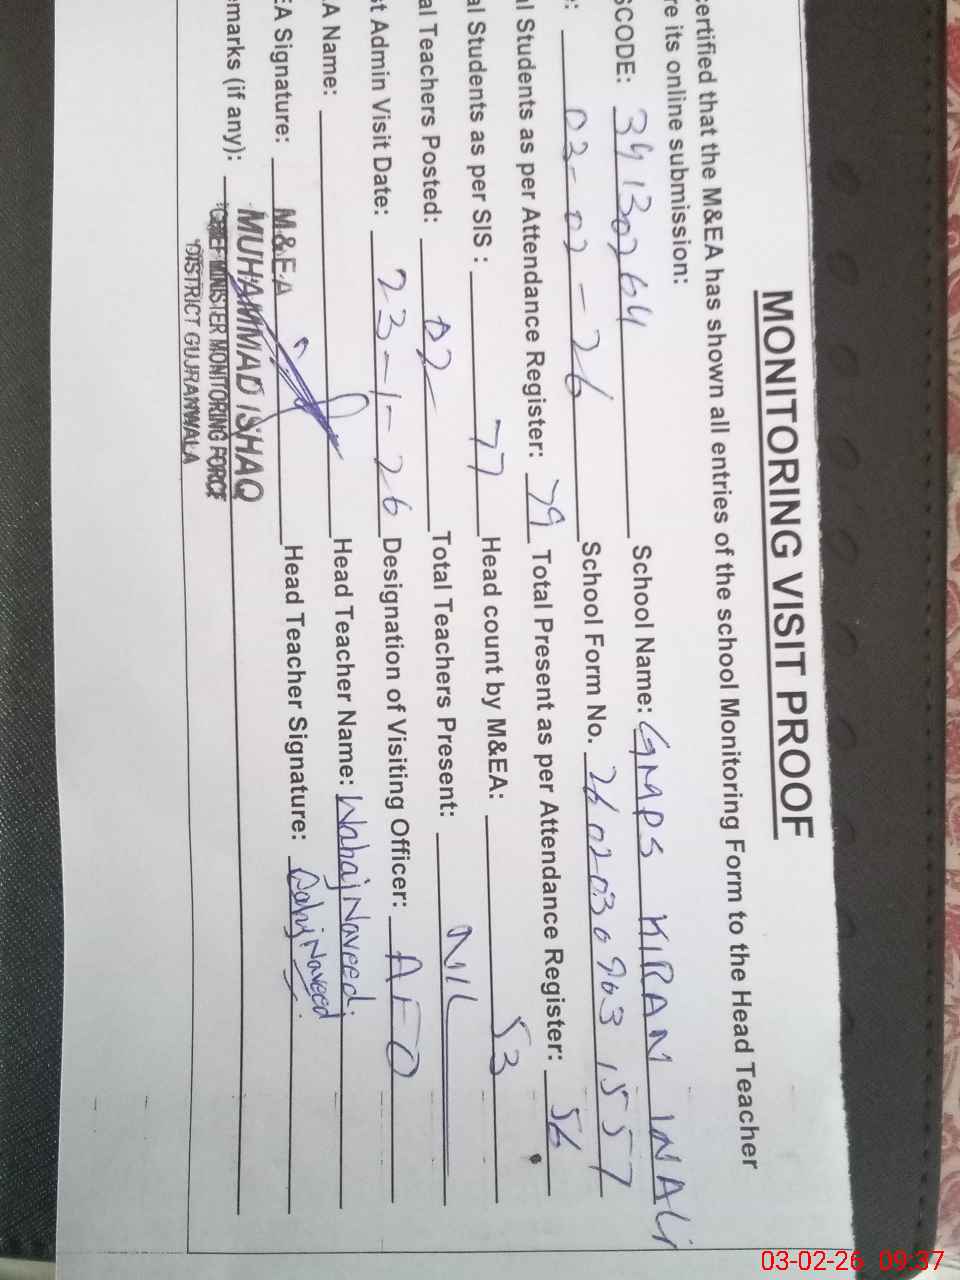 MONITORING VISIT PROOF
certified that the M&EA has shown all entries of the school Monitoring Form to the Head Teacher
re its online submission:
SCODE: 34130264 School Name: GMPS KIRAN INALI
e: 03-02-26 School Form No. 260203090963 1557
al Students as per Attendance Register: 79 Total Present as per Attendance Register: 56
al Students as per SIS : 77 Head count by M&EA: 53
al Teachers Posted: 02 Total Teachers Present: NIL
st Admin Visit Date: 23-1-26 Designation of Visiting Officer: AEO
A Name: Head Teacher Name: Wahaj Naveed
EA Signature: M&EA Head Teacher Signature: Wahaj Naveed
emarks (if any): MUHAMMAD ISHAQ
CHIEF MINISTER MONITORING FORCE
DISTRICT GUJRANWALA
03-02-26 09:37